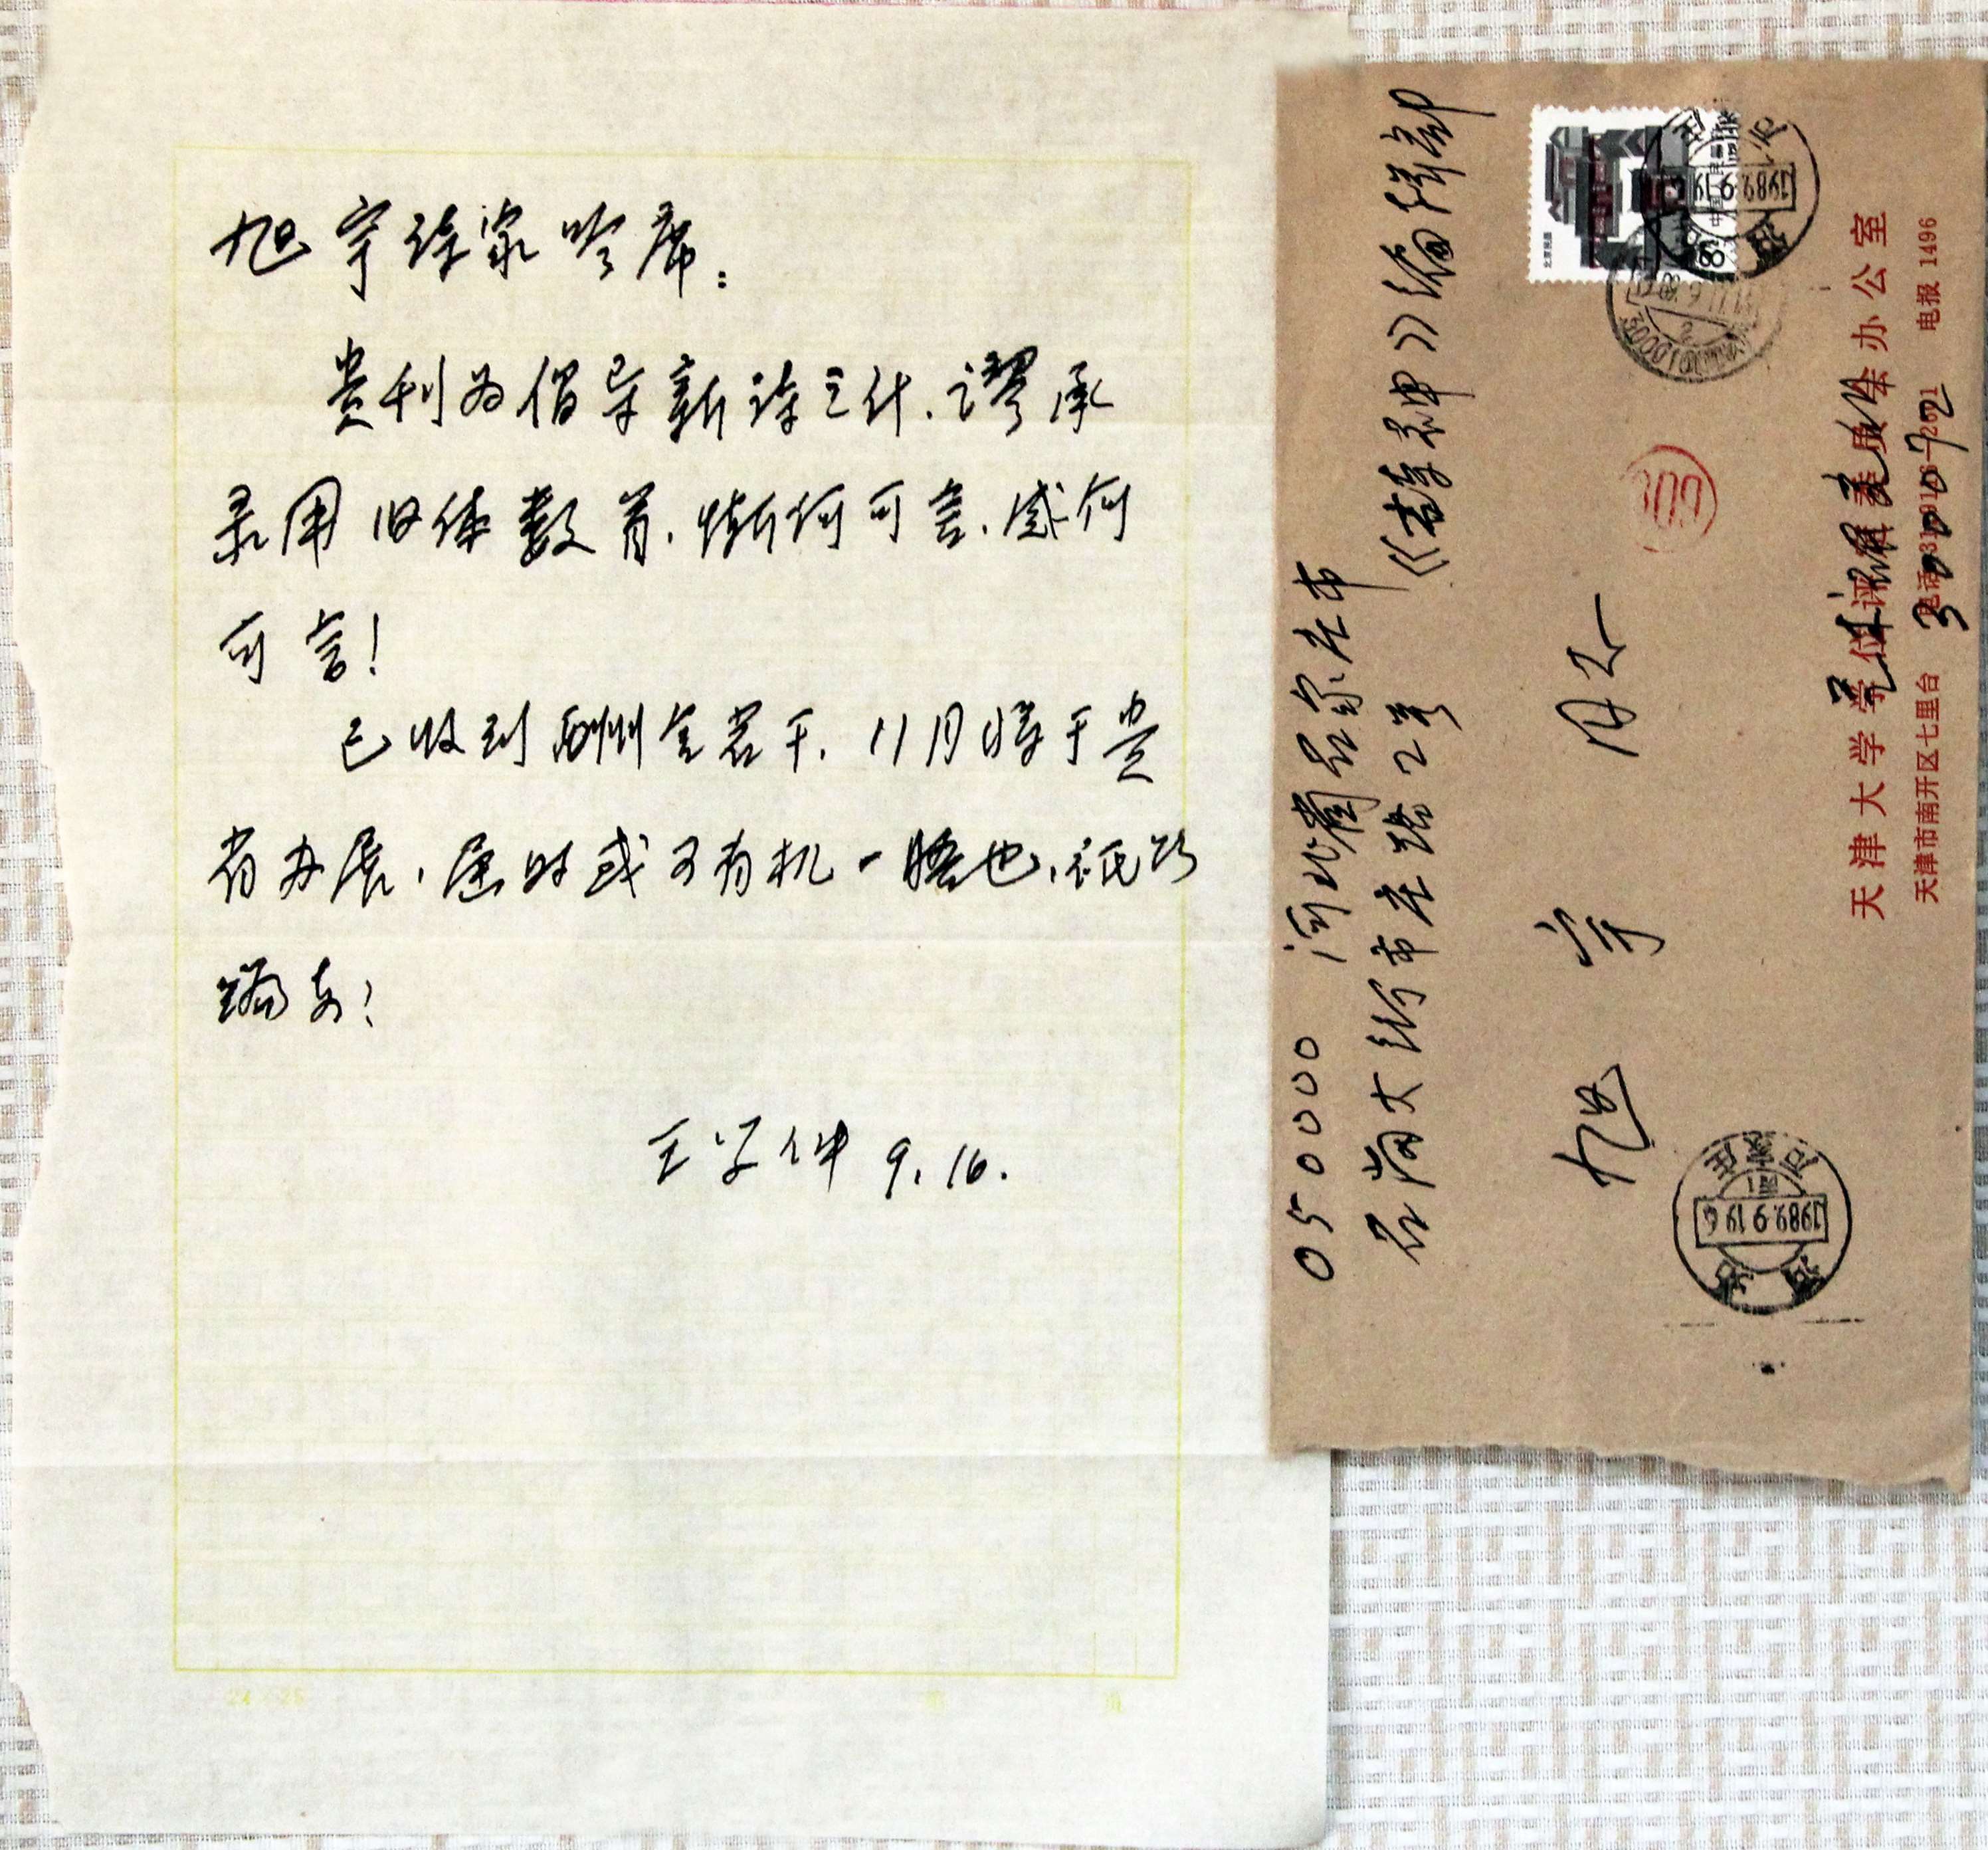 旭宇诗家吟席：
贵刊为倡导新诗之什，谬承
录用旧体数首，惭何可言，感何
可言！
已收到酬金若干，11月将于贵
省办展，届时或可有机一晤也，祗颂
编安！
王学仲 9.16.
050000 河北省石家庄市
石岗大街市庄路2号
《诗神》编辑部
旭宇 同志
天津大学学位评
委员会办公室
天津市南开区七里台
电报 1496
300072
北京民居
中国
1989.9.19
1989.9.19.6
河北
石家庄